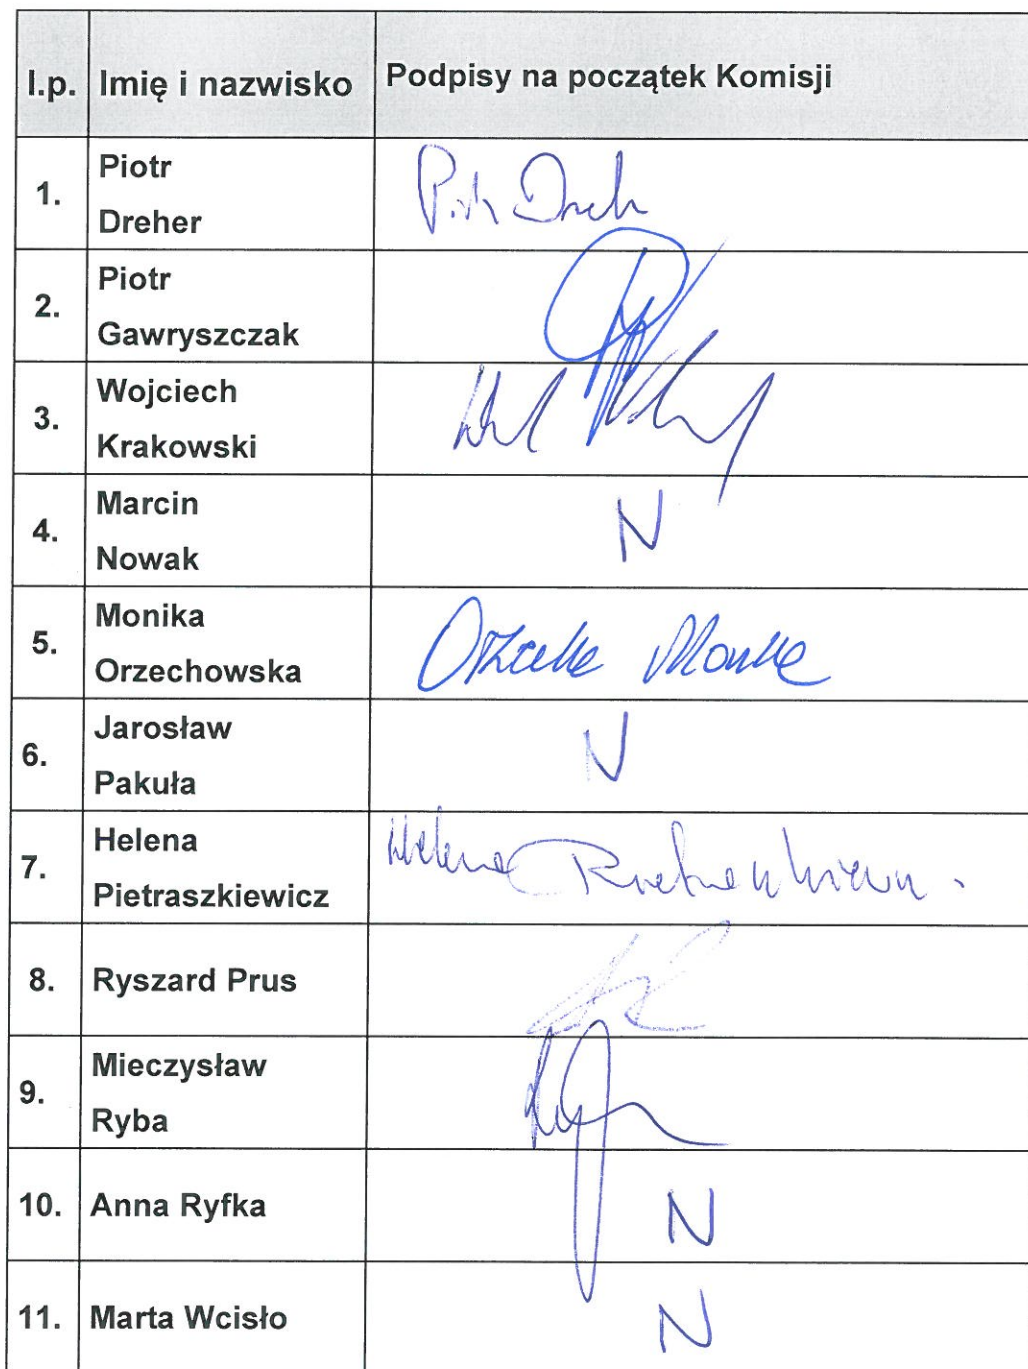 l.p. Imię i nazwisko Podpisy na początek Komisji
1. Piotr
Dreher
2. Piotr
Gawryszczak
3. Wojciech
Krakowski
4. Marcin
Nowak
N
5. Monika
Orzechowska
6. Jarosław
Pakuła
N
7. Helena
Pietraszkiewicz
Helena
8. Ryszard Prus
9. Mieczysław
Ryba
10. Anna Ryfka N
11. Marta Wcisło N